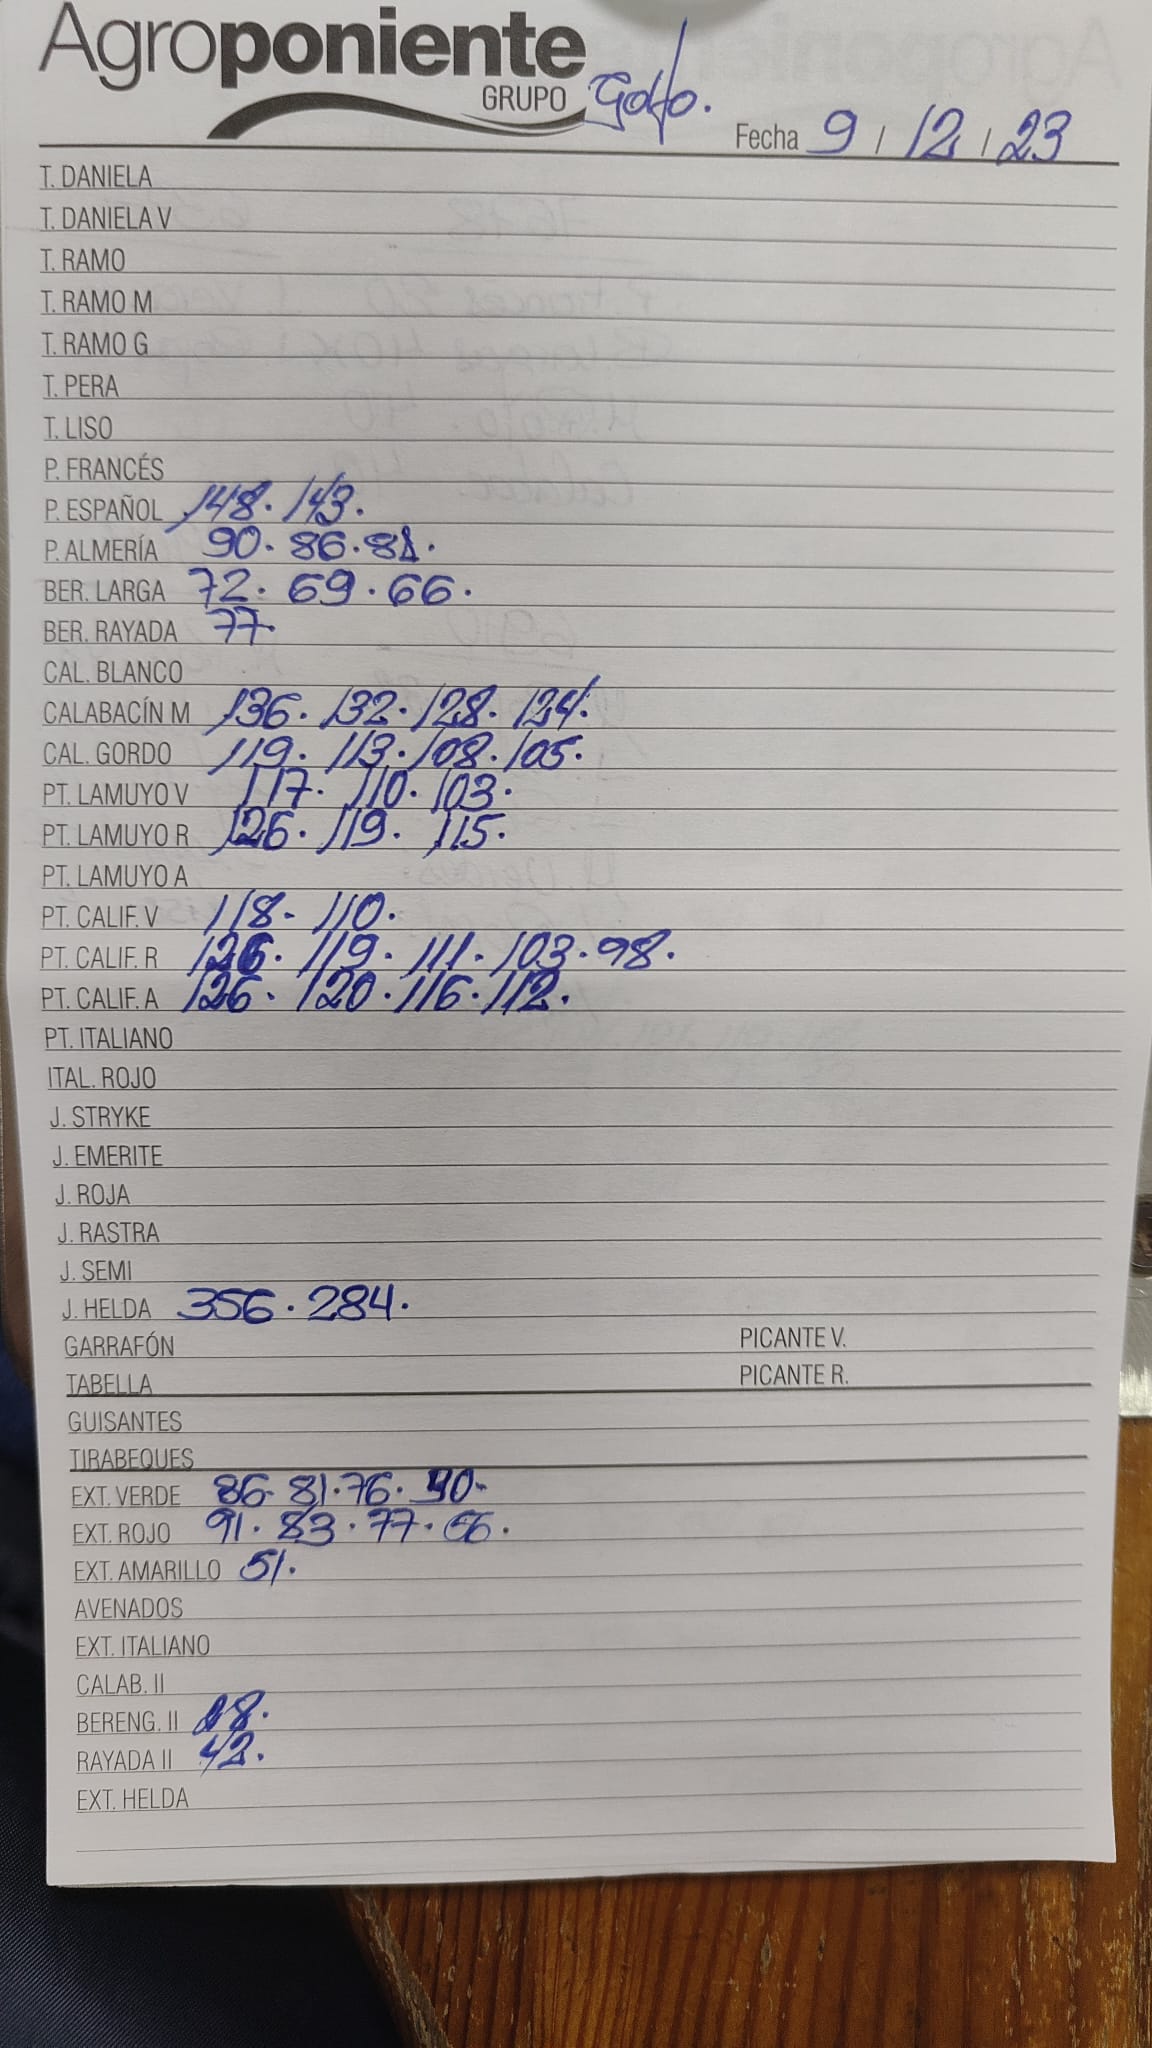 Agroponiente
GRUPO Golfo.
Fecha 9 / 12 / 23
T. DANIELA
T. DANIELA V
T. RAMO
T. RAMO M
T. RAMO G
T. PERA
T. LISO
P. FRANCÉS
P. ESPAÑOL 148. 143.
P. ALMERÍA 90. 86. 81.
BER. LARGA 72. 69. 66.
BER. RAYADA 77.
CAL. BLANCO
CALABACÍN M 136. 132. 128. 124.
CAL. GORDO 119. 113. 108. 105.
PT. LAMUYO V 117. 110. 103.
PT. LAMUYO R 126. 119. 115.
PT. LAMUYO A
PT. CALIF. V 118. 110.
PT. CALIF. R 126. 119. 111. 103. 98.
PT. CALIF. A 126. 120. 116. 112.
PT. ITALIANO
ITAL. ROJO
J. STRYKE
J. EMERITE
J. ROJA
J. RASTRA
J. SEMI
J. HELDA 356. 284.
GARRAFÓN PICANTE V.
TABELLA PICANTE R.
GUISANTES
TIRABEQUES
EXT. VERDE 86. 81. 76.
EXT. ROJO 91. 83. 77. 66.
EXT. AMARILLO 51.
AVENADOS
EXT. ITALIANO
CALAB. II
BERENG. II
RAYADA II 42.
EXT. HELDA